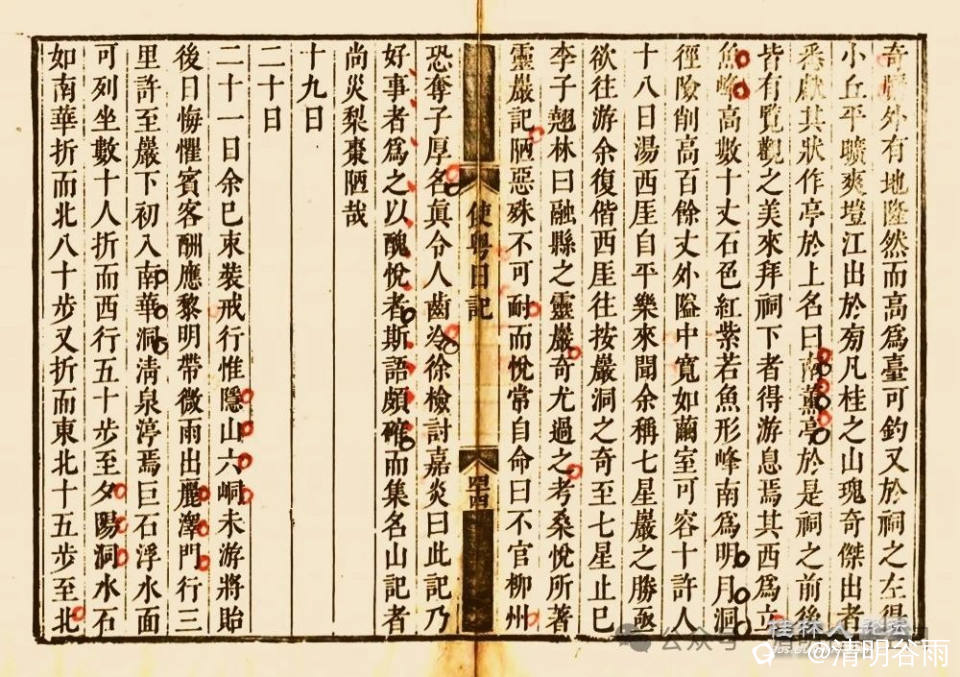 奇勝外有地隆然而高爲臺可釣又於祠之左得
小丘平曠爽塏江出於旁凡桂之山瑰奇傑出者
悉獻其狀作亭於上名曰薰亭於是祠之前後
皆有覽觀之美來拜祠下者得游息焉其西爲立
魚峰高數十丈石色紅紫若魚形峰南爲明月洞
徑險削高百餘丈外隘中寬如繭室可容十許人
十八日湯西厓自平樂來聞余稱七星巖之勝亟
欲往游余復偕西厓往按巖洞之奇至七星止已
李子翹林曰融縣之靈巖奇尤過之考桑悅所著
靈巖記陋惡殊不可耐而悅常自命曰不官柳州
使粤日記
四四
恐奪子厚名眞令人齒冷徐檢討嘉炎曰此記乃
好事者爲之以醜悅者斯語頗確而集名山記者
尚災梨棗陋哉
十九日
二十日
二十一日余已束裝戒行惟隱山六峒未游將貽
後日悔懼賓客酬應黎明帶微雨出麗澤門行三
里許至巖下初入南華洞淸泉渟焉巨石浮水面
可列坐數十人折而西行五十步至夕陽洞水石
如南華折而北八十步又折而東北十五步至北
公众号
桂林人论坛
@清明谷雨